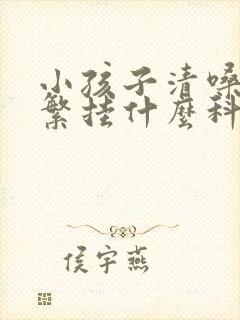 小孩子清嗓
繁挂什麼科
侯宇燕